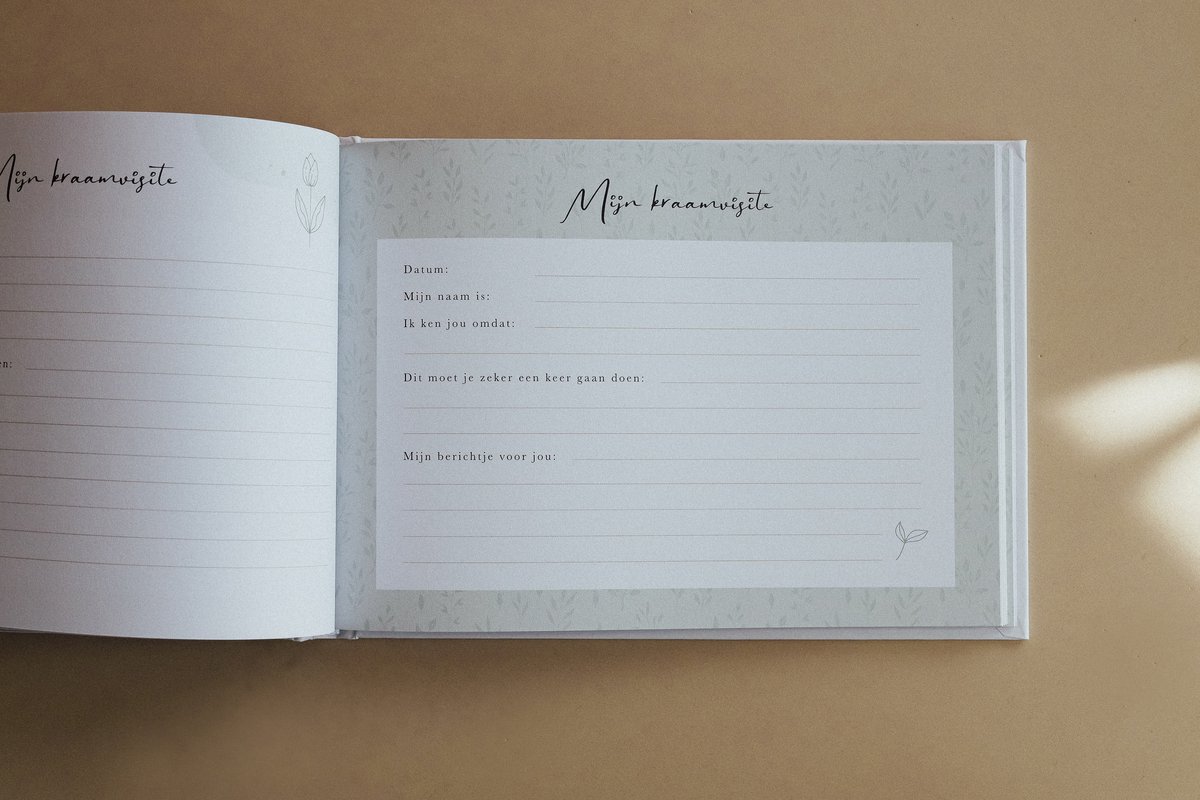 Mijn kraamvisite
Mijn kraamvisite
Datum:
Mijn naam is:
Ik ken jou omdat:
Dit moet je zeker een keer gaan doen:
Mijn berichtje voor jou: